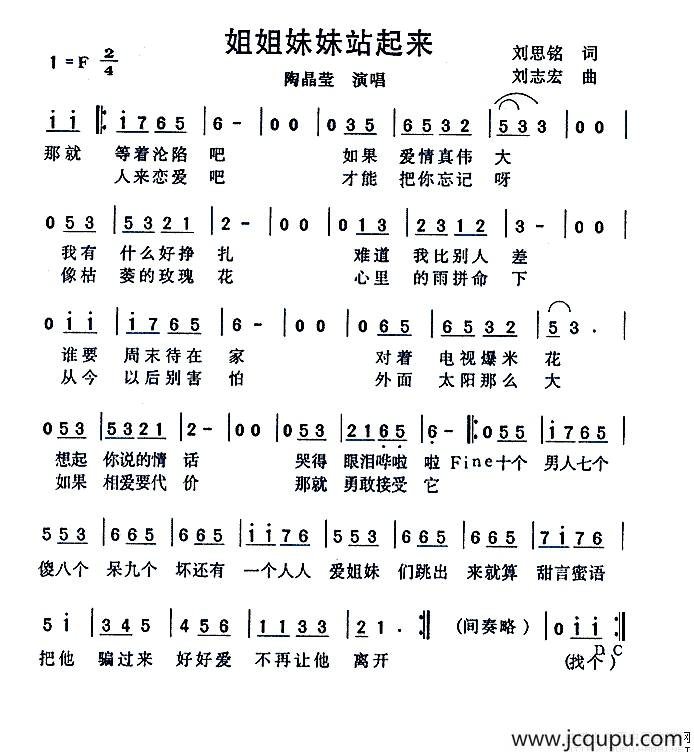 姐姐妹妹站起来
1=F 2/4
刘思铭 词
陶晶莹 演唱
刘志宏 曲
i i ‖: i 7 6 5 | 6 - | 0 0 | 0 3 5 | 6 5 3 2 | 5 3 3 | 0 0 |
那就 等着沦陷 吧 如果 爱情真伟 大
人来恋爱 吧 才能 把你忘记 呀
0 5 3 | 5 3 2 1 | 2 - | 0 0 | 0 1 3 | 2 3 1 2 | 3 - | 0 0 |
我有 什么好挣 扎 难道 我比别人 差
像枯 萎的玫瑰 花 心里 的雨拼命 下
0 i i | i 7 6 5 | 6 - | 0 0 | 0 6 5 | 6 5 3 2 | 5 3 . |
谁要 周末待在 家 对着 电视爆米 花
从今 以后别害 怕 外面 太阳那么 大
0 5 3 | 5 3 2 1 | 2 - | 0 0 | 0 5 3 | 2 1 6 5 | 6 - ‖: 0 5 5 | i 7 6 5 |
想起 你说的情 话 哭得 眼泪哗啦 啦 Fine 十个 男人七个
如果 相爱要代 价 那就 勇敢接受 它
5 5 3 | 6 6 5 | 6 6 5 | i i 7 6 | 5 5 3 | 6 6 5 | 6 6 5 | 7 i 7 6 |
傻八个 呆九个 坏还有 一个人人 爱姐妹 们跳出 来就算 甜言蜜语
5 i | 3 4 5 | 4 5 6 | 1 1 3 3 | 2 1 . :‖ (间奏略) | 0 i i :‖
D C
把他 骗过来 好好爱 不再让他 离开 (找个)
www.jcqupu.com